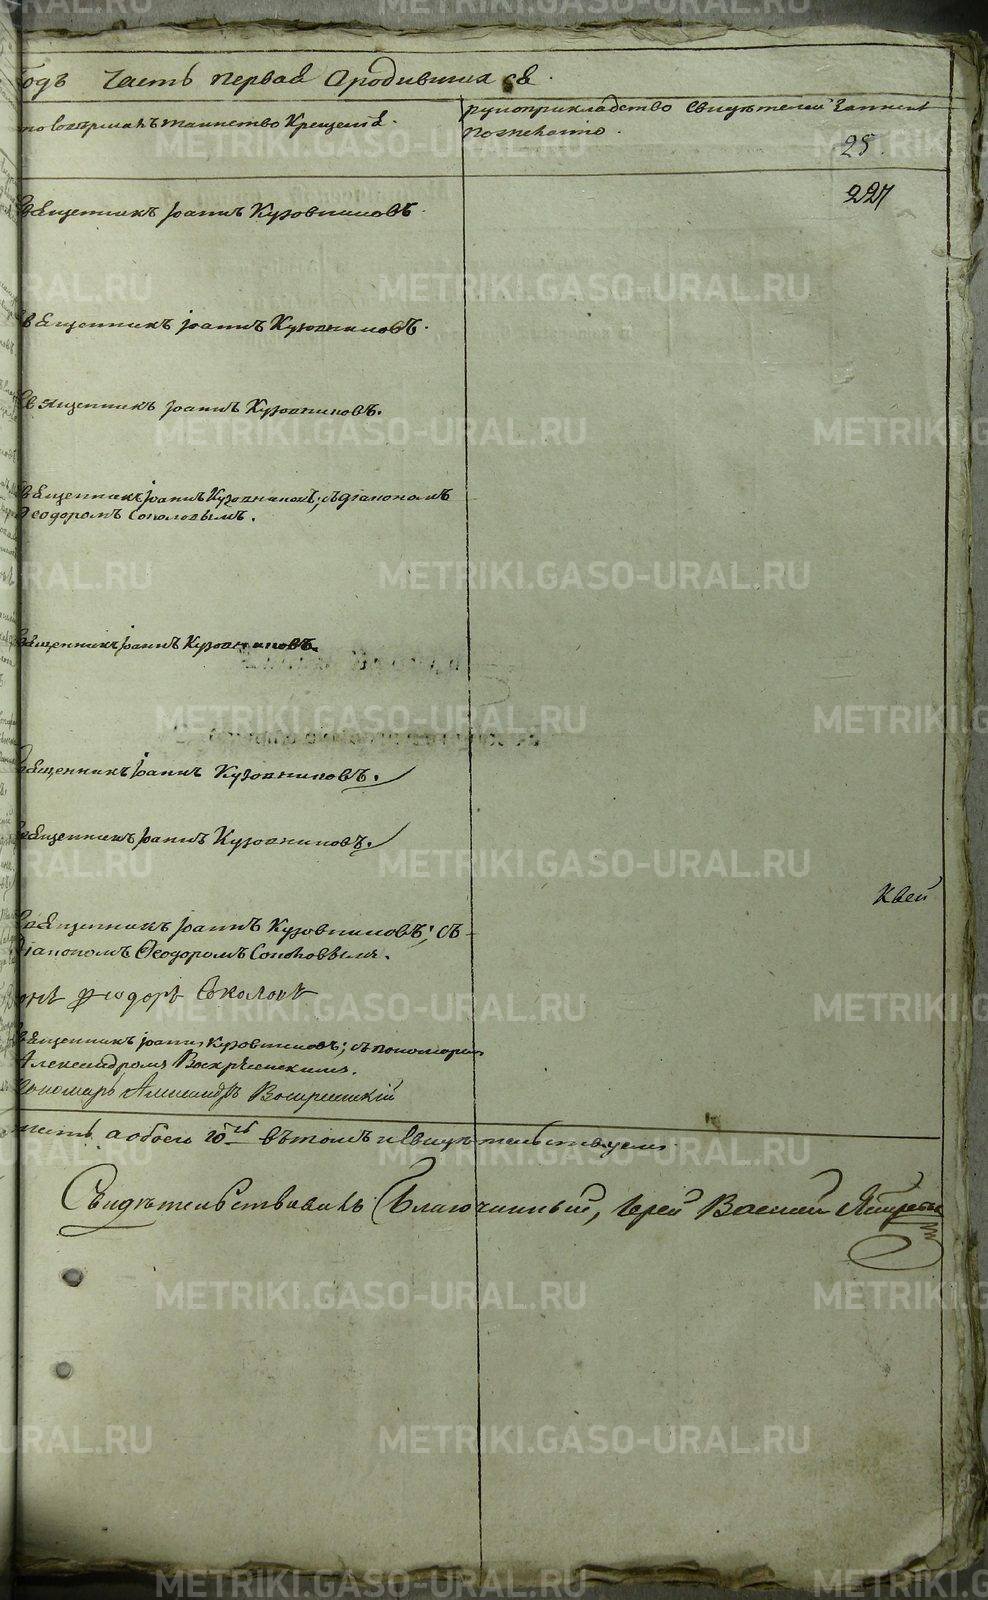 Годъ Часть первая О родившихся.
то совершалъ таинство Крещенія.
рукоприкладство свидѣтелей записи
по желанію.
25.
227
Священникъ Іоаннъ Кузовниковъ.
Священникъ Іоаннъ Кузовниковъ.
Священникъ Іоаннъ Кузовниковъ.
Священникъ Іоаннъ Кузовниковъ; съ діакономъ
Феодоромъ Соколовымъ.
Священникъ Іоаннъ Кузовниковъ.
Священникъ Іоаннъ Кузовниковъ.
Священникъ Іоаннъ Кузовниковъ.
Квей
Священникъ Іоаннъ Кузовниковъ; съ
Діакономъ Феодоромъ Соколовымъ.
онъ Феодоръ Соколовъ
Священникъ Іоаннъ Кузовниковъ; съ пономаремъ
Александромъ Воскресенскимъ.
Пономарь Александръ Воскресенскій
а обоего 10 въ томъ и свидѣтельствуемъ.
Свидѣтельствовалъ Благочинный, Іерей Василий
METRIKI.GASO-URAL.RU